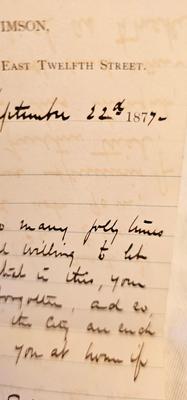 IMSON,
EAST TWELFTH STREET.
eptember 22d 1877-
o many jolly times
d willing to let
in this, your
forgotten, and so,
the City and
you at home if